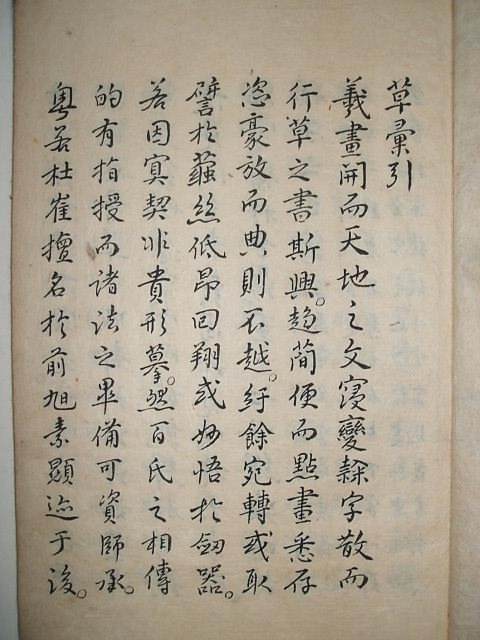 草彙引
羲畫開而天地之文寖變隸字散而
行草之書斯興。趨簡便而點畫悉存
恣豪放而典則不越。紆餘宛轉或取
譬於蠶絲低昂回翔或妙悟於劒器。
若因冥契非貴形摹。然百氏之相傳
的有指授而諸法之畢備可資師承。
粵若杜崔擅名於前旭素顯迹于後。